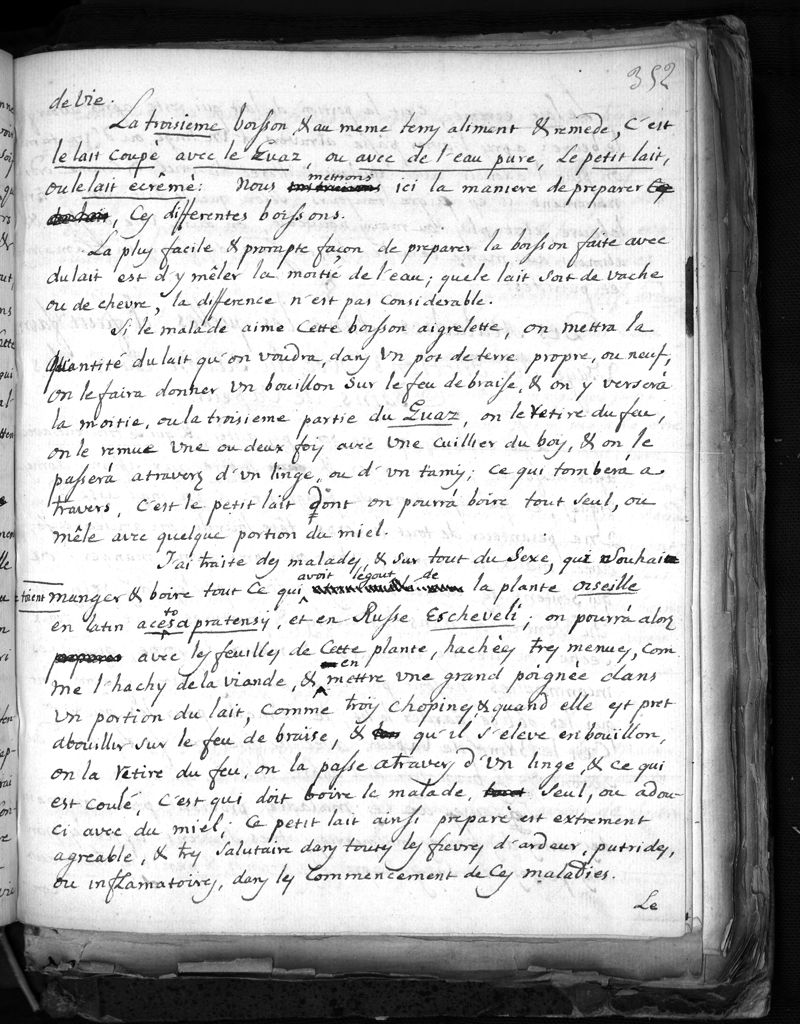 352
de vie.
La troisieme boisson, & au meme tems aliment & remede, C'est
le lait Coupé avec le Quaz, ou avec de l'eau pure, Le petit lait,
ou le lait écrémé: Nous mettrons ici la maniere de preparer
Ces differentes boissons.
La plus facile & prompte façon de preparer la boisson faite avec
du lait est d'y mêler la moitié de l'eau; que le lait soit de vache
ou de chevre, la difference n'est pas Considerable.
Si le malade aime Cette boisson aigrelette, on mettra la
Quantité du lait qu'on voudra, dans un pot de terre propre, ou neuf,
on le faira donner un bouillon sur le feu de braise, & on y verserá
la moitie, ou la troisieme partie du Quaz, on le retire du feu,
on le remue une ou deux fois avec une cuillier du bois, & on le
passerá atraverz d'un linge, ou d'un tamis; ce qui tomberá a
travers, C'est le petit lait dont on pourrá boire tout seul, ou
mêle avec quelque portion du miel.
J'ai traite des malades, & sur tout du Sexe, qui Souhai
toient manger & boire tout Ce qui avoit legout de la plante oiseille
en latin acetosa pratensis, et en Russe Escheveli; on pourrá alors
avec les feuilles de Cette plante, hachées tres menues, Com
me l'hachy de la viande, & en mettre une grand poignée dans
un portion du lait, Comme trois Chopines, & quand elle est pret
abouillir sur le feu de braise, & qu'il s'eleve en bouillon,
on la retire du feu, on la passe atravers d'un linge, & ce qui
est coulé, C'est qui doit boire le malade, Seul, ou adou
ci avec du miel; Ce petit lait ainsi preparé est extrement
agreable, & tres salutaire dans toutes les fievres d'ardeur, putrides,
ou inflamatoires, dans les Commencement de Ces maladies.
Le